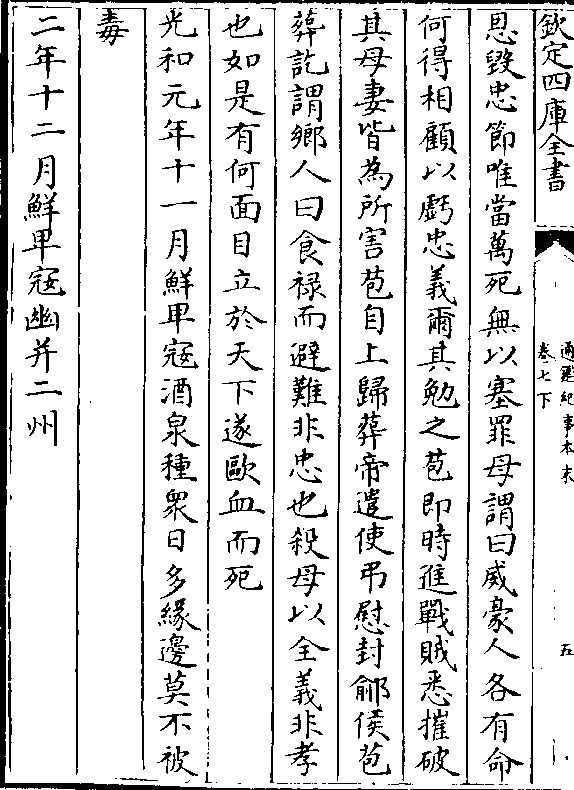 欽定四庫全書
通鑑紀事本末
卷七下
五
恩毀忠節唯當萬死無以塞罪母謂曰威豪人各有命
何得相顧以虧忠義爾其勉之苞即時進戰賊悉摧破
其母妻皆為所害苞自上歸葬帝遣使弔慰封鄃侯苞
葬訖謂鄉人曰食禄而避難非忠也殺母以全義非孝
也如是有何面目立於天下遂歐血而死
光和元年十一月鮮卑寇酒泉種衆日多緣邊莫不被
毒
二年十二月鮮卑寇幽并二州